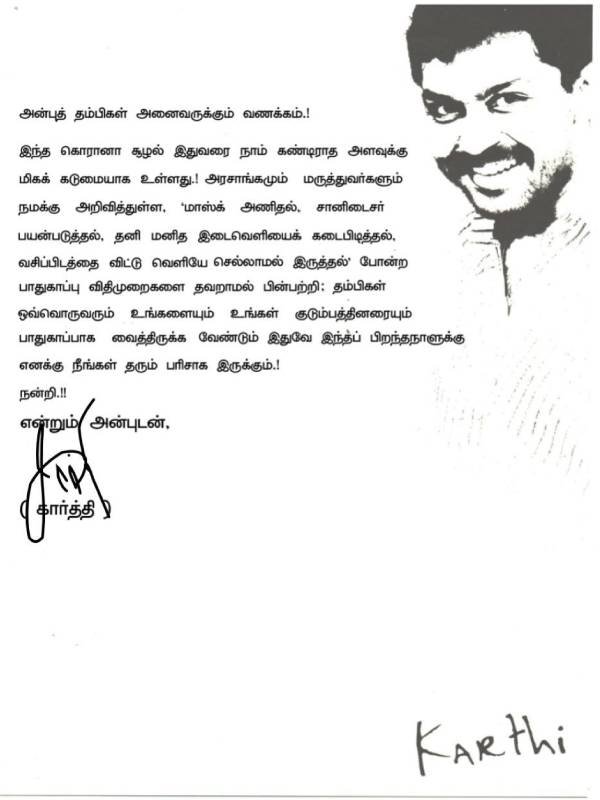 அன்புத் தம்பிகள் அனைவருக்கும் வணக்கம்.!
இந்த கொரானா சூழல் இதுவரை நாம் கண்டிராத அளவுக்கு
மிகக் கடுமையாக உள்ளது.! அரசாங்கமும் மருத்துவர்களும்
நமக்கு அறிவித்துள்ள, ‘மாஸ்க் அணிதல், சானிடைசர்
பயன்படுத்தல், தனி மனித இடைவெளியைக் கடைபிடித்தல்,
வசிப்பிடத்தை விட்டு வெளியே செல்லாமல் இருத்தல்’ போன்ற
பாதுகாப்பு விதிமுறைகளை தவறாமல் பின்பற்றி; தம்பிகள்
ஒவ்வொருவரும் உங்களையும் உங்கள் குடும்பத்தினரையும்
பாதுகாப்பாக வைத்திருக்க வேண்டும் இதுவே இந்தப் பிறந்தநாளுக்கு
எனக்கு நீங்கள் தரும் பரிசாக இருக்கும்.!
நன்றி.!!
என்றும் அன்புடன்,
( கார்த்தி )
KARthi